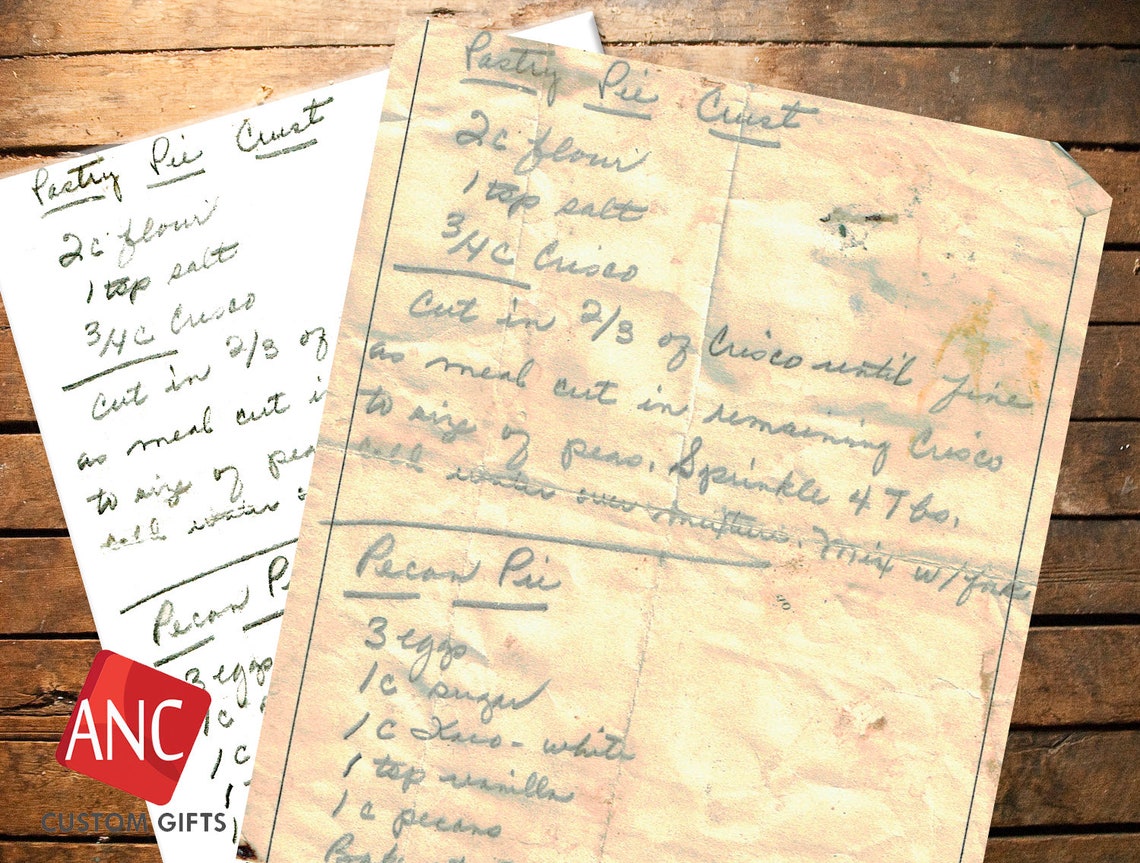 Pastry Pie Crust
2c flour
1 tsp salt
3/4C Crisco
Cut in 2/3 of
as meal cut in
to size of peas
cold water
Pecan P
3 eggs
1c
1c
1
1
Pastry Pie Crust
2c flour
1 tsp salt
3/4C Crisco
Cut in 2/3 of Crisco until fine
as meal cut in remaining Crisco
to size of peas. Sprinkle 4 Tbs.
cold water over mixture. Mix w/fork
Pecan Pie
3 eggs
1c sugar
1c Karo - white
1 tsp vanilla
1c pecans
ANC
CUSTOM GIFTS